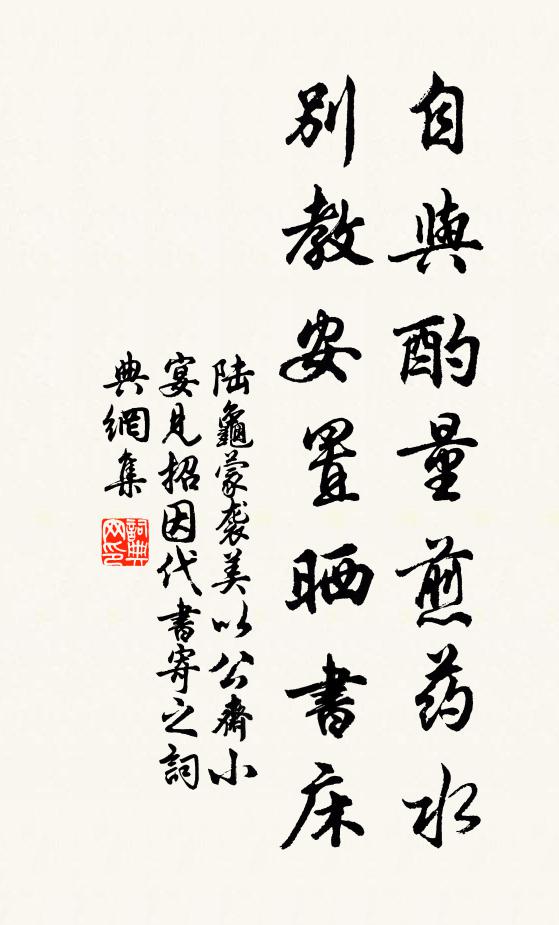 自與酌量煎药水
別教安置晒書床
陆龜蒙袭美以公齋小
宴見招因代書寄之詞
典網集
詞典
网印